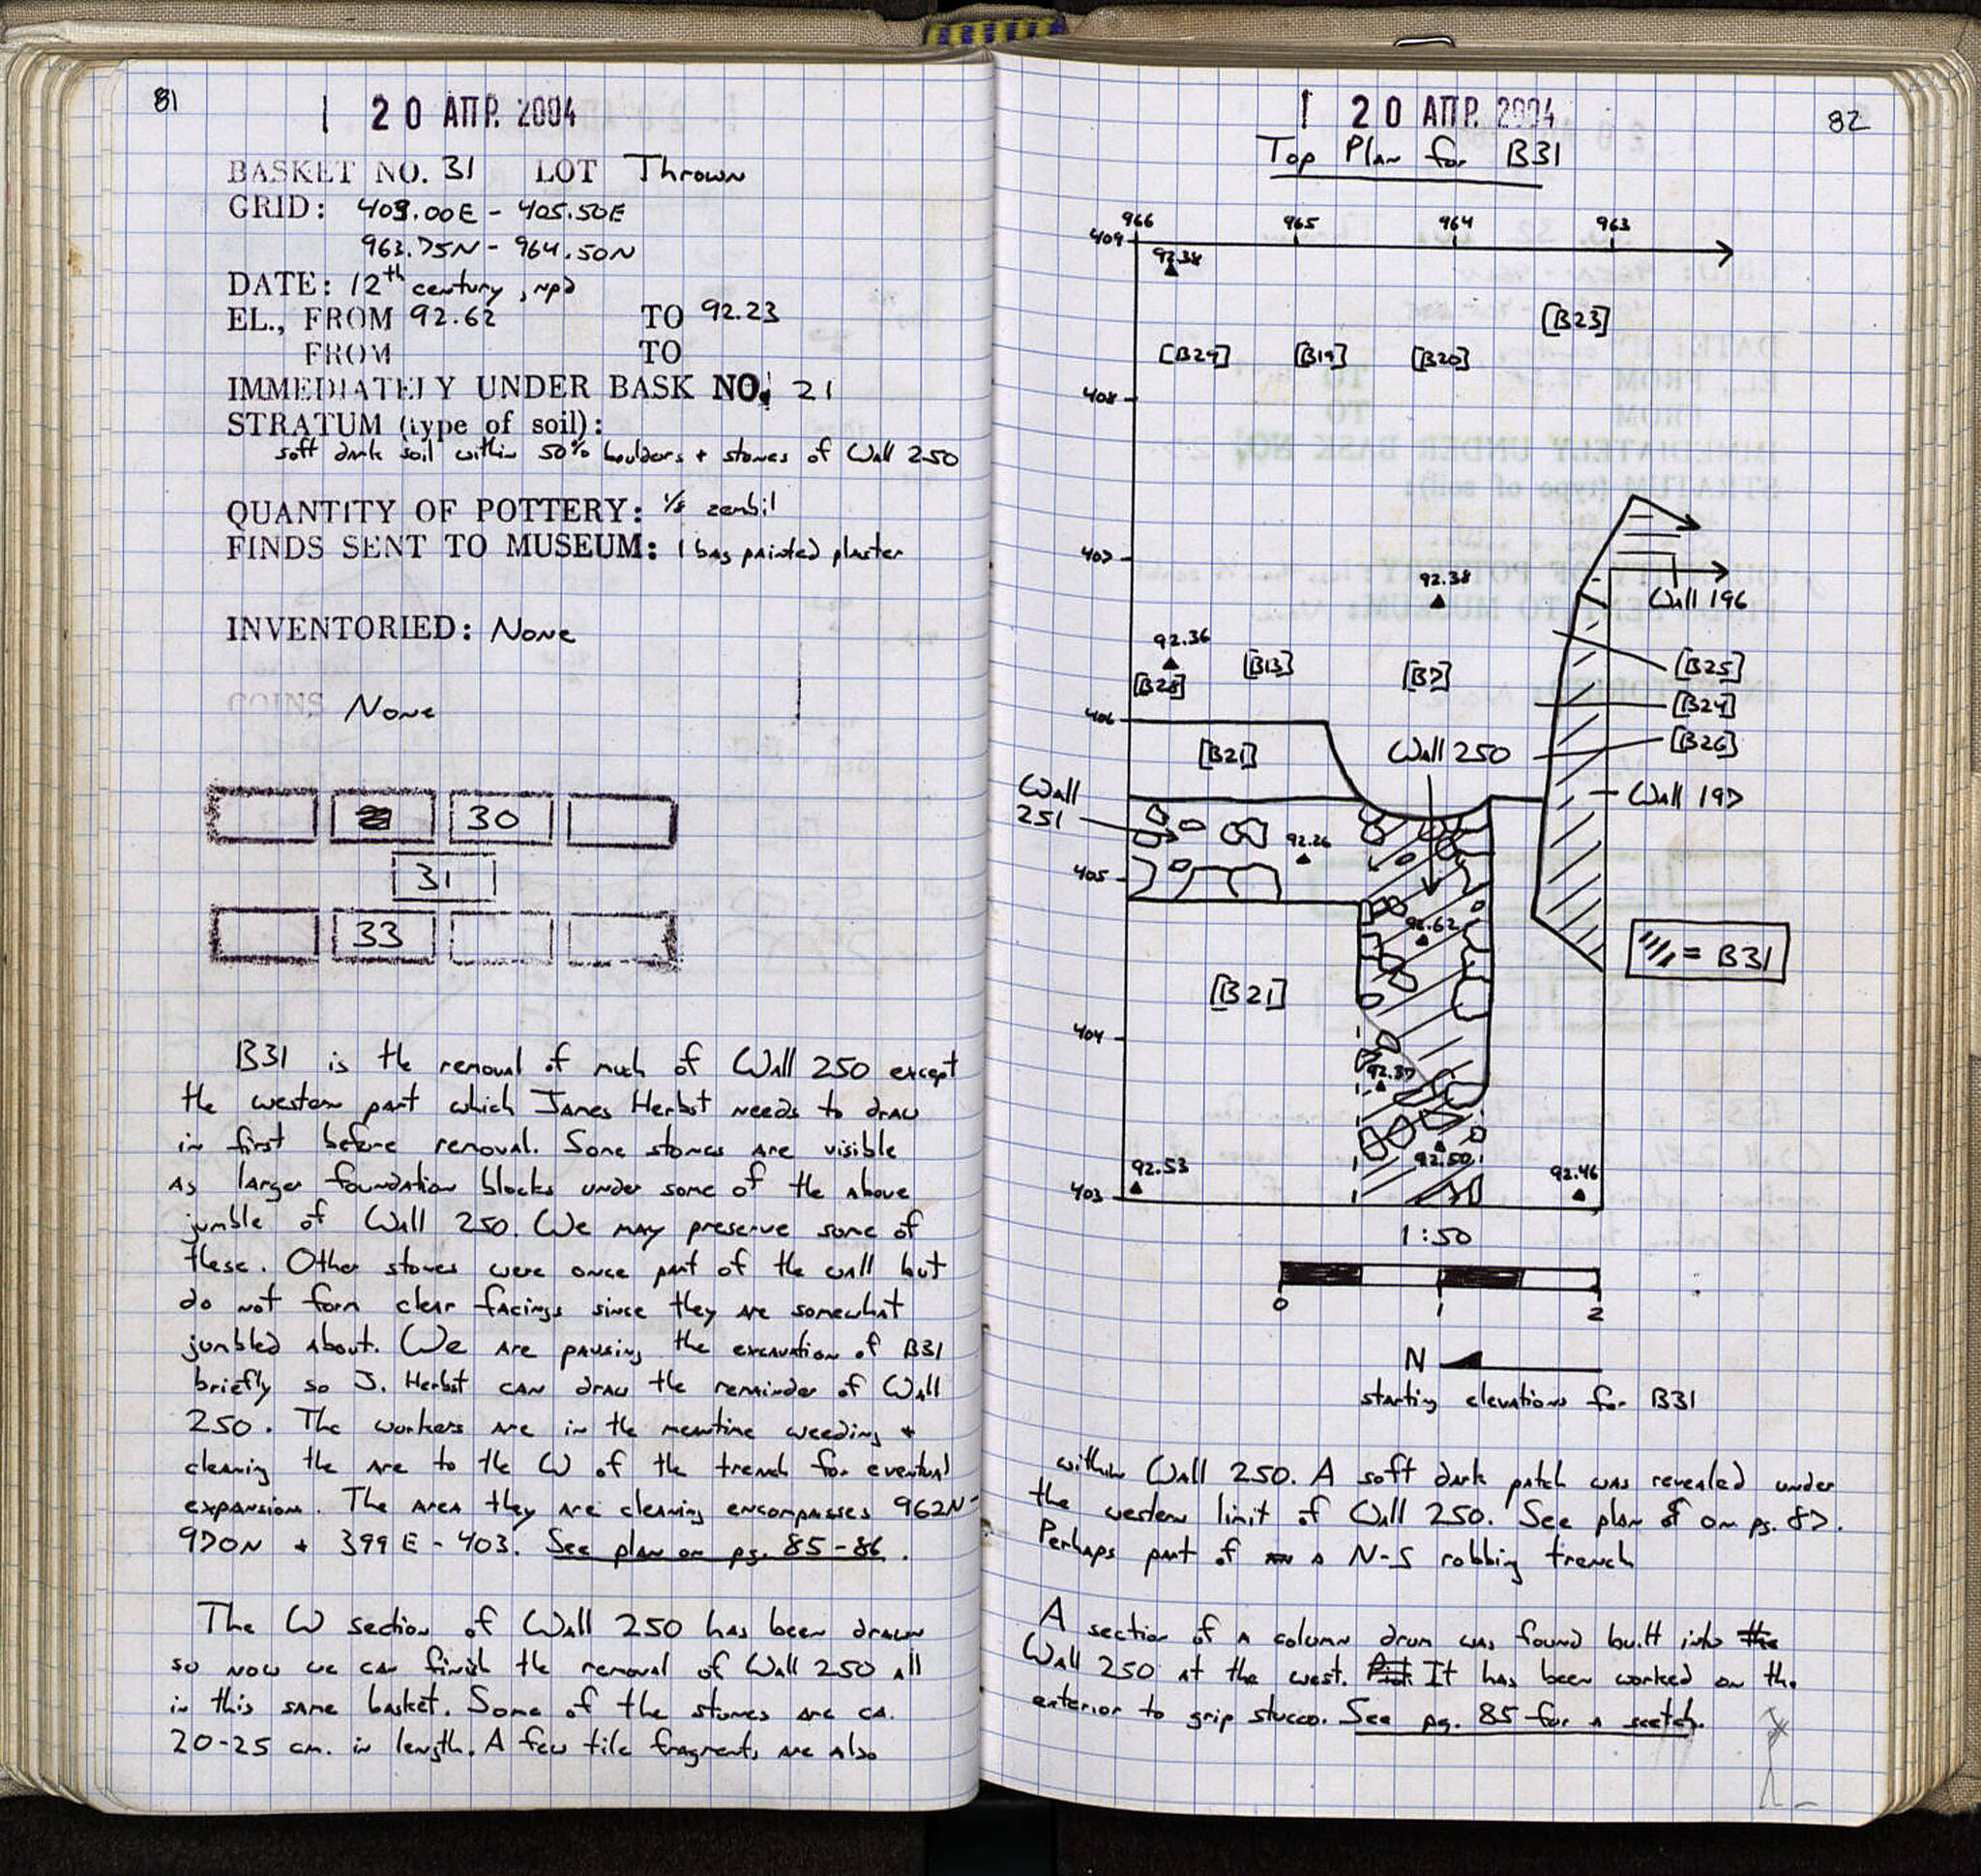 81
| 20 ΑΠΡ. 2004
BASKET NO. 31 LOT Thrown
GRID: 403.00E - 405.50E
963.75N - 964.50N
DATE: 12th century, npd
EL., FROM 92.62 TO 92.23
FROM TO
IMMEDIATELY UNDER BASK NO. 21
STRATUM (type of soil):
soft dark soil within 50% boulders + stones of Wall 250
QUANTITY OF POTTERY: 1/8 zembil
FINDS SENT TO MUSEUM: 1 bag painted plaster
INVENTORIED: None
COINS None
30
31
33
B31 is the removal of much of Wall 250 except
the western part which James Herbst needs to draw
in first before removal. Some stones are visible
as larger foundation blocks under some of the above
jumble of Wall 250. We may preserve some of
these. Other stones were once part of the wall but
do not form clear facings since they are somewhat
jumbled about. We are pausing the excavation of B31
briefly so J. Herbst can draw the reminder of Wall
250. The workers are in the meantime weeding +
cleaning the are to the W of the trench for eventual
expansion. The area they are cleaning encompasses 962N-
970N + 399E - 403. See plan on pg. 85-86.
The W section of Wall 250 has been drawn
so now we can finish the removal of Wall 250 all
in this same basket. Some of the stones are ca.
20-25 cm. in length. A few tile fragments are also
82
| 20 ΑΠΡ. 2004
Top Plan for B31
966 965 964 963
409
92.38
[B23]
[B29] [B19] [B20]
408
407
92.38
Wall 196
92.36
[B28] [B13] [B7]
[B25]
[B24]
406
[B21] Wall 250 [B26]
Wall 197
Wall
251
92.26
405
92.62
= B31
[B21]
404
92.37
92.50
92.53 92.46
403
1:50
0 1 2
N
starting elevations for B31
within Wall 250. A soft dark patch was revealed under
the western limit of Wall 250. See plan of on pg. 87.
Perhaps part of a N-S robbing trench
A section of a column drum was found built into the
Wall 250 at the west. It has been worked on the
exterior to grip stucco. See pg. 85 for a scetch.